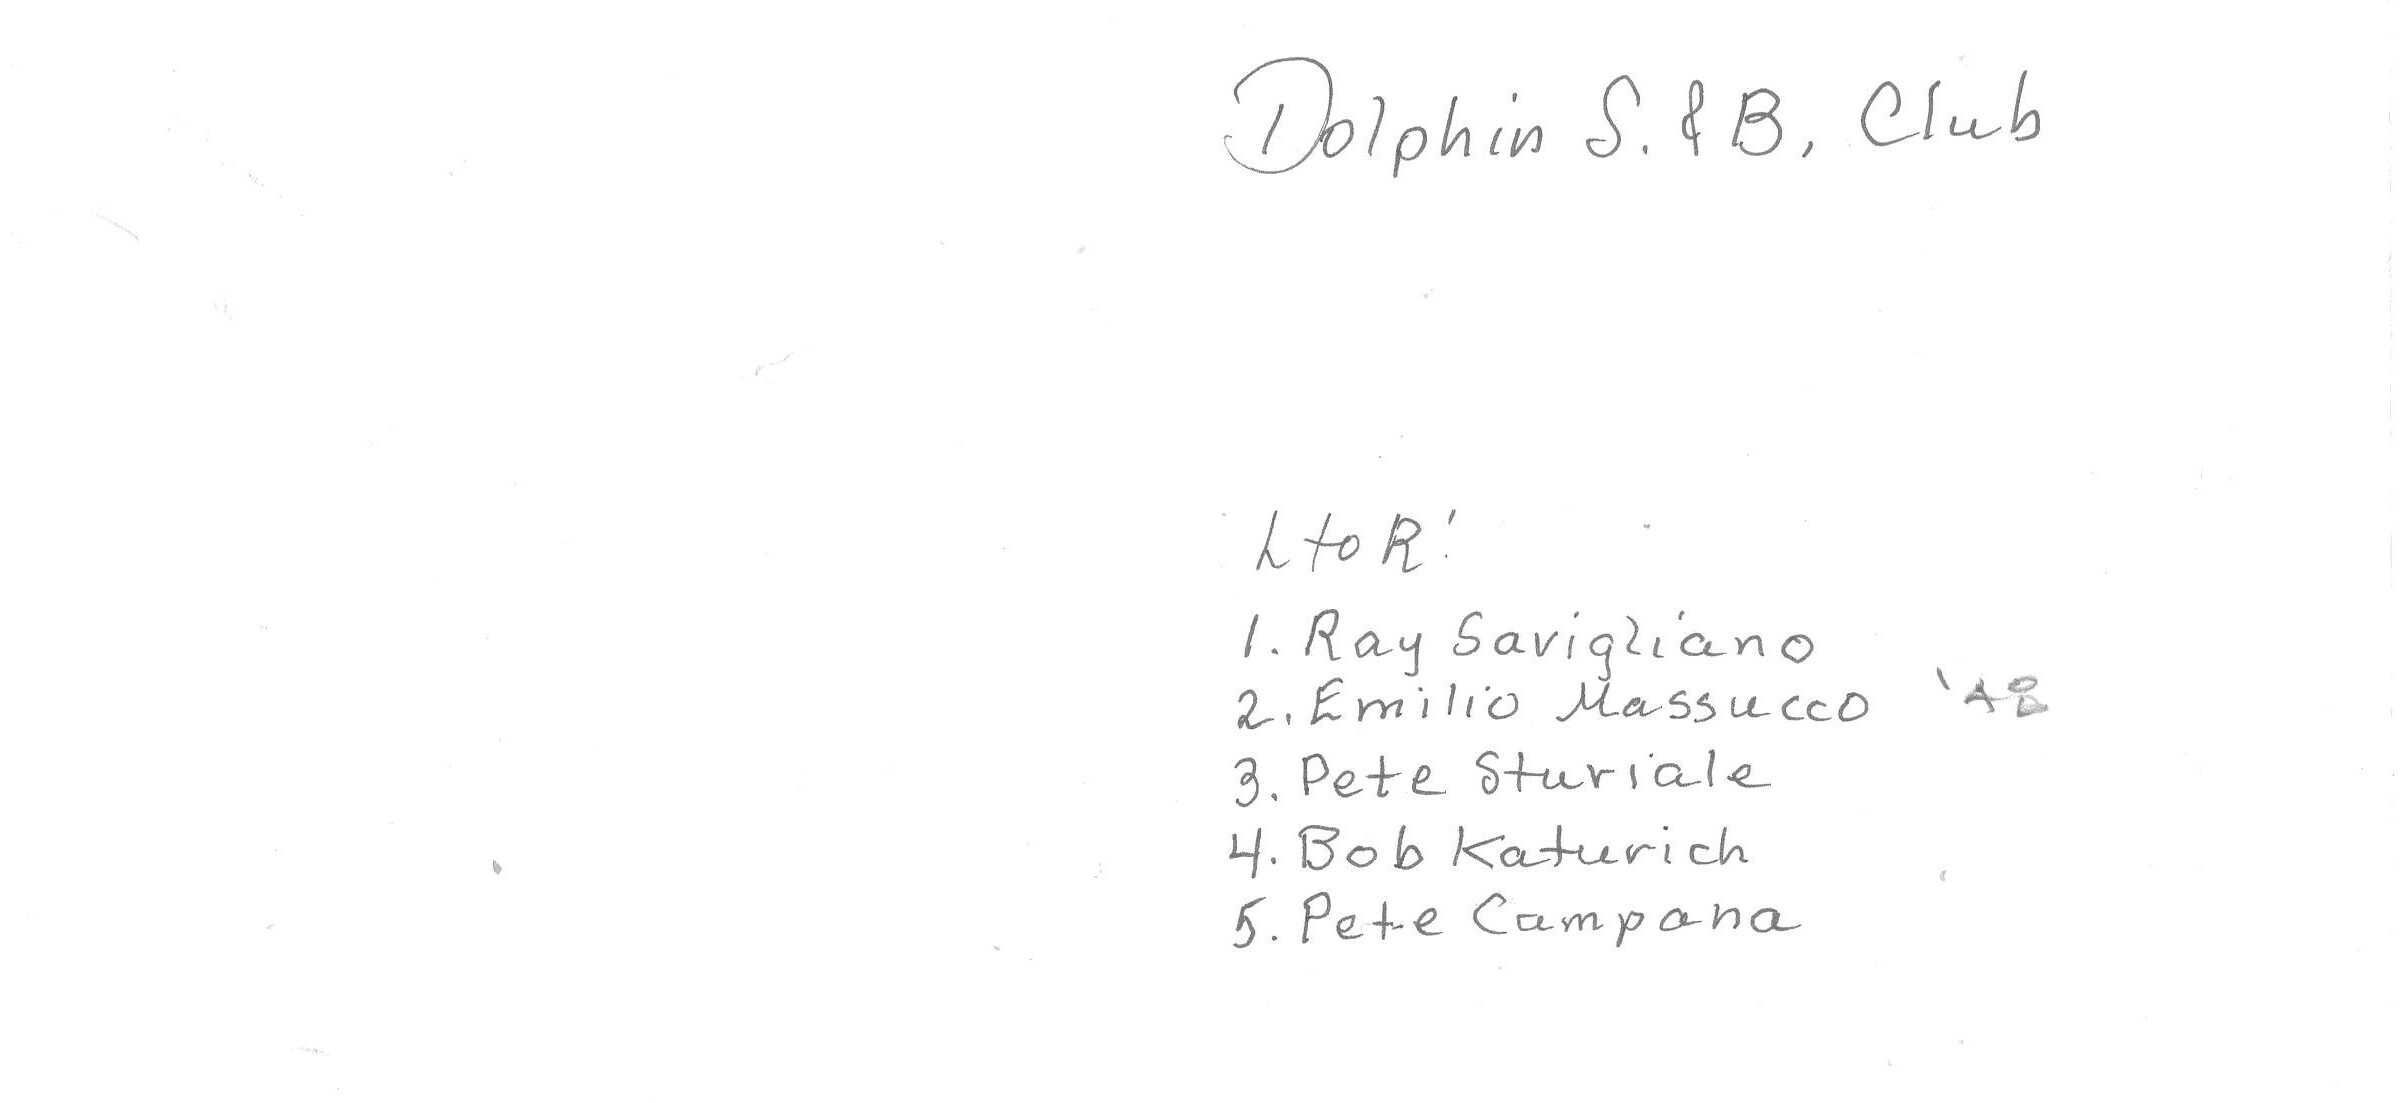 Dolphin S. & B. Club
L to R:
1. Ray Savigliano
2. Emilio Massucco '48
3. Pete Sturiale
4. Bob Katurich
5. Pete Campana